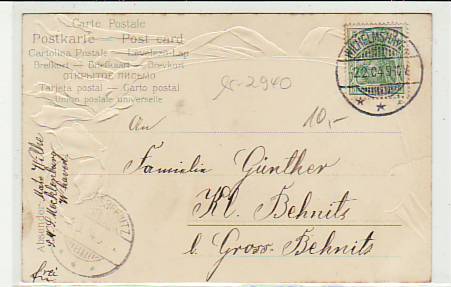 Carte Postale
Postkarte — Post card
Cartolina Postale — Levelező-Lap
Brefkort — Briefkaart — Brevkort
ОТКРЫТОЕ ПИСЬМО
Tarjeta postal — Carto postal
Union postale universelle
gr-2940
10,-
WILHELMSHAVEN
An
Familie Günther
Kl. Behnitz
b. Gross-Behnitz
Absender: Mato Wilke
S.M.S. Mecklenburg
W'haven